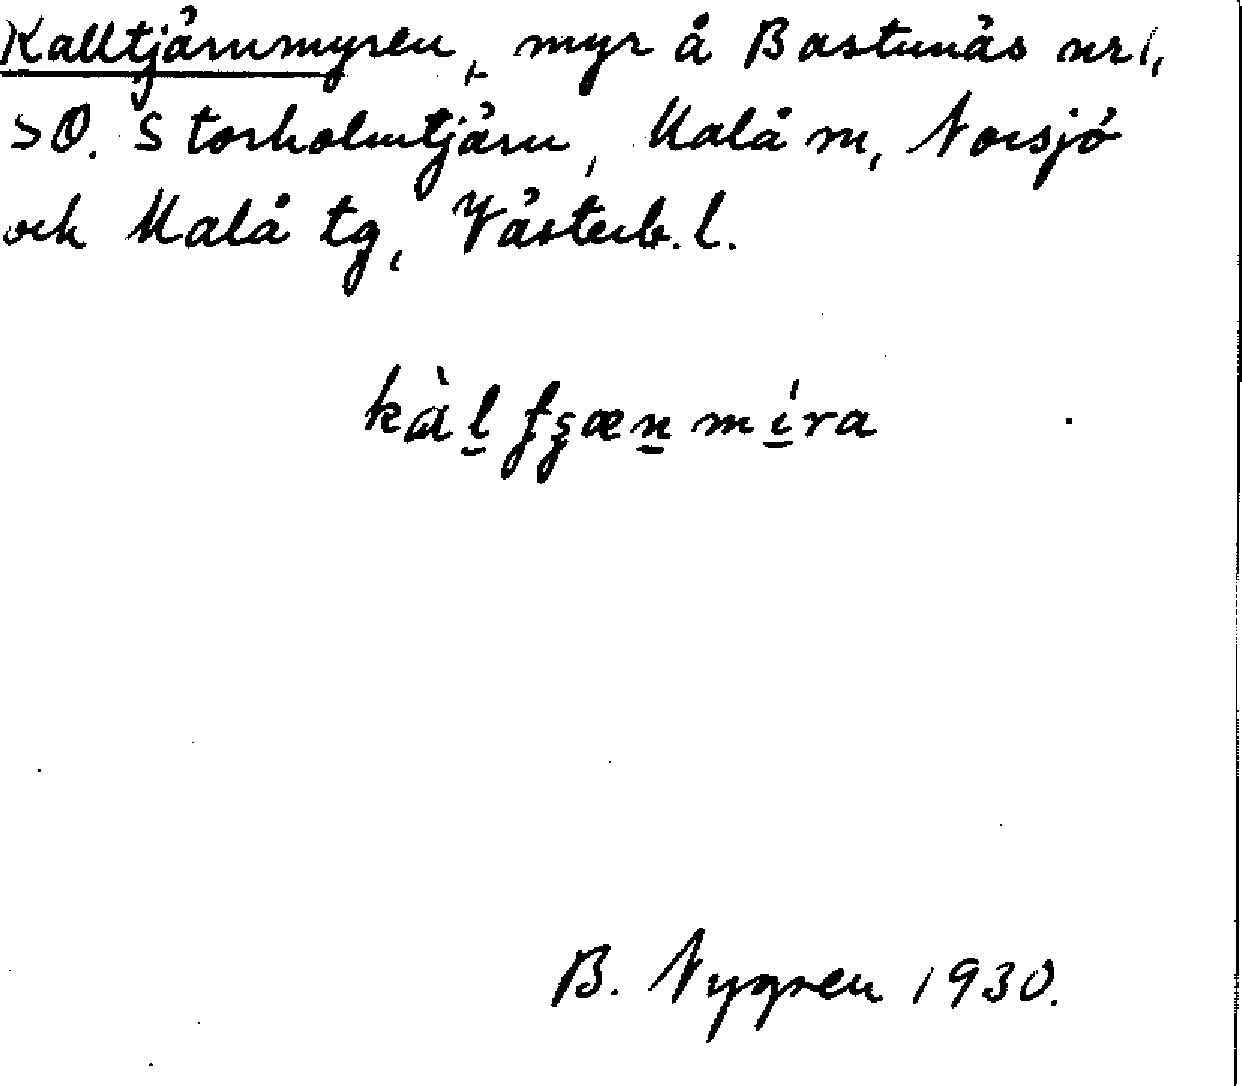 Kalltjärnmyren, myr å Bastunäs nr 1,
SO. Storholmtjärn, Malå sn, Norsjö
och Malå tg, Västerb. l.
kàl̠ fʂæn̠ mi̠ ́ra
B. Nygren 1930.